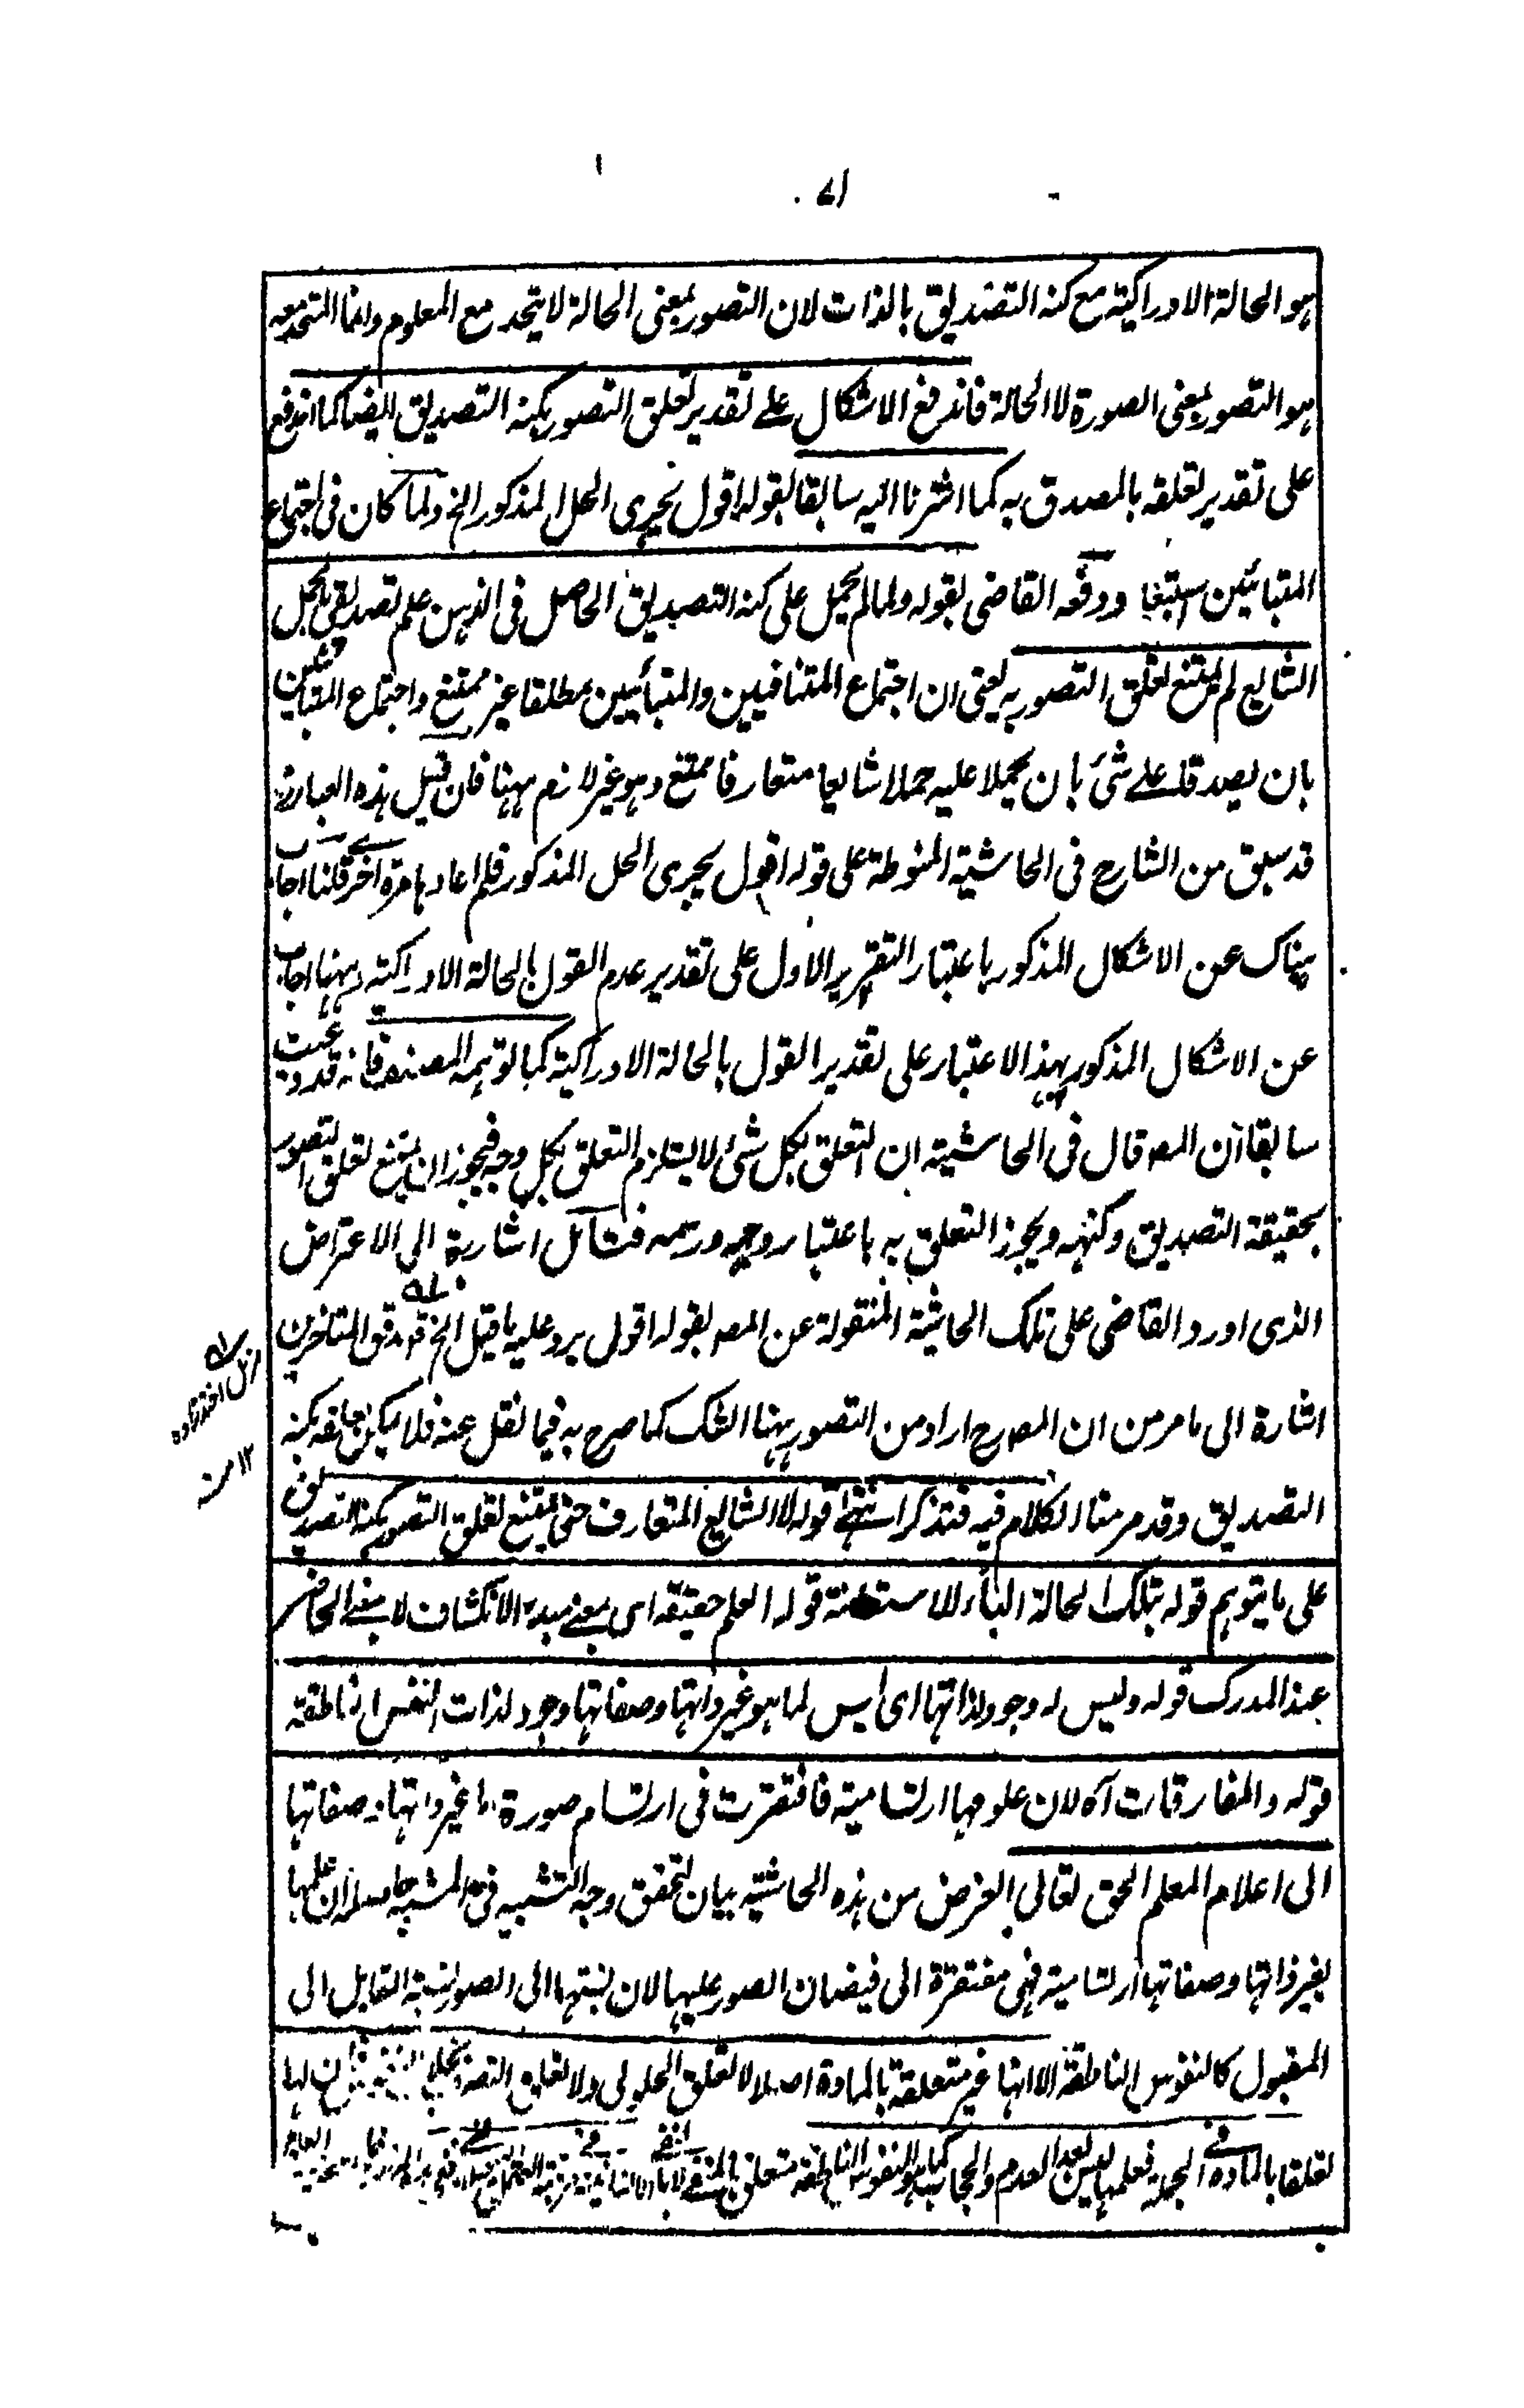 ٧١
هو الحالة الادراكية مع كنه التصديق بالذات لان التصور بمعنى الحالة لا يتحد مع المعلوم وانما المتحد معه
هو التصور بمعنى الصورة لا الحالة فاندفع الاشكال على تقدير تعلق التصور بكنه التصديق ايضا كما اندفع
على تقدير تعلقه بالمصدق به كما اشرنا اليه سابقا بقوله اقول يجرى الحل المذكور الخ ولما كان فى اجتماع
المتبائنين استبعا ودفعه القاضى بقوله ولما لم يحمل على كنه التصديق الحاصل فى الذهن علم تصديقى بحمل
الشايع لم يمتنع تعلق التصور به يعنى ان اجتماع المتنافيين والمتبائنين مطلقا غير ممتنع واجتماع المتبائنين
بان يصدقا على شئ بان يحملا عليه حملا شايعا متعارفا ممتنع وهو غير لازم ههنا فان قيل هذه العبارة
قد سبق من الشارح فى الحاشية المنوطة على قوله اقول يجرى الحل المذكور فلم اعادها مرة اخرى قلنا اجاب
هناك عن الاشكال المذكور باعتبار التقرير الاول على تقدير عدم القول بالحالة الادراكية وههنا اجاب
عن الاشكال المذكور بهذا الاعتبار على تقدير القول بالحالة الادراكية كما توهمه المصنف فانه قد
سابقا ان المصـ قال فى الحاشية ان التعلق بكل شئ لا يستلزم التعلق بكل وجه فيجوز ان يمتنع تعلق التصور
بحقيقة التصديق وكنهه ويجوز التعلق به باعتبار وجهه ورسمه فتأمل اشارة الى الاعتراض
الذى اورد القاضى على تلك الحاشية المنقولة عن المصـ بقوله اقول يرد عليه ما قيل الخ قوله دقق المتاخرين
اشارة الى ما مر من ان المصـ رح اراد من التصور ههنا الشك كما صرح به فيما نقل عنه فلا يمكن تعلقه بكنه
التصديق وقد مر منا الكلام فيه فتذكر انتهى قوله لا الشايع المتعارف حتى يمتنع تعلق التصور بكنه التصديق
على ما يتوهم قوله بتلك الحالة الباء للاستعانة قوله العلم حقيقة اى بمعنى مبدء الانكشاف لا بمعنى الحاضر
عند المدرك قوله وليس له وجود لذاتها اى ليس لما هو غير ذاتها وصفاتها وجود لذات النفس الناطقة
قوله والمفارقات آه لان علومها ارتسامية فافتقرت فى ارتسام صورة ما غير ذاتها وصفاتها
الى اعلام المعلم الحق تعالى الغرض من هذه الحاشية بيان تحقق وجه التشبيه فى المشبه ان علمها
بغير ذاتها وصفاتها ارتسامية فهى مفتقرة الى فيضان الصور عليها لان نسبتها الى الصور نسبة القابل الى
المقبول كالنفوس الناطقة الا انها غير متعلقة بالمادة اصلا لا تعلق الحلولى ولا تعلق التصرف ان لها
تعلقا بالمادة فى الجملة فعلمها ليس بعد العدم
١٢ منه